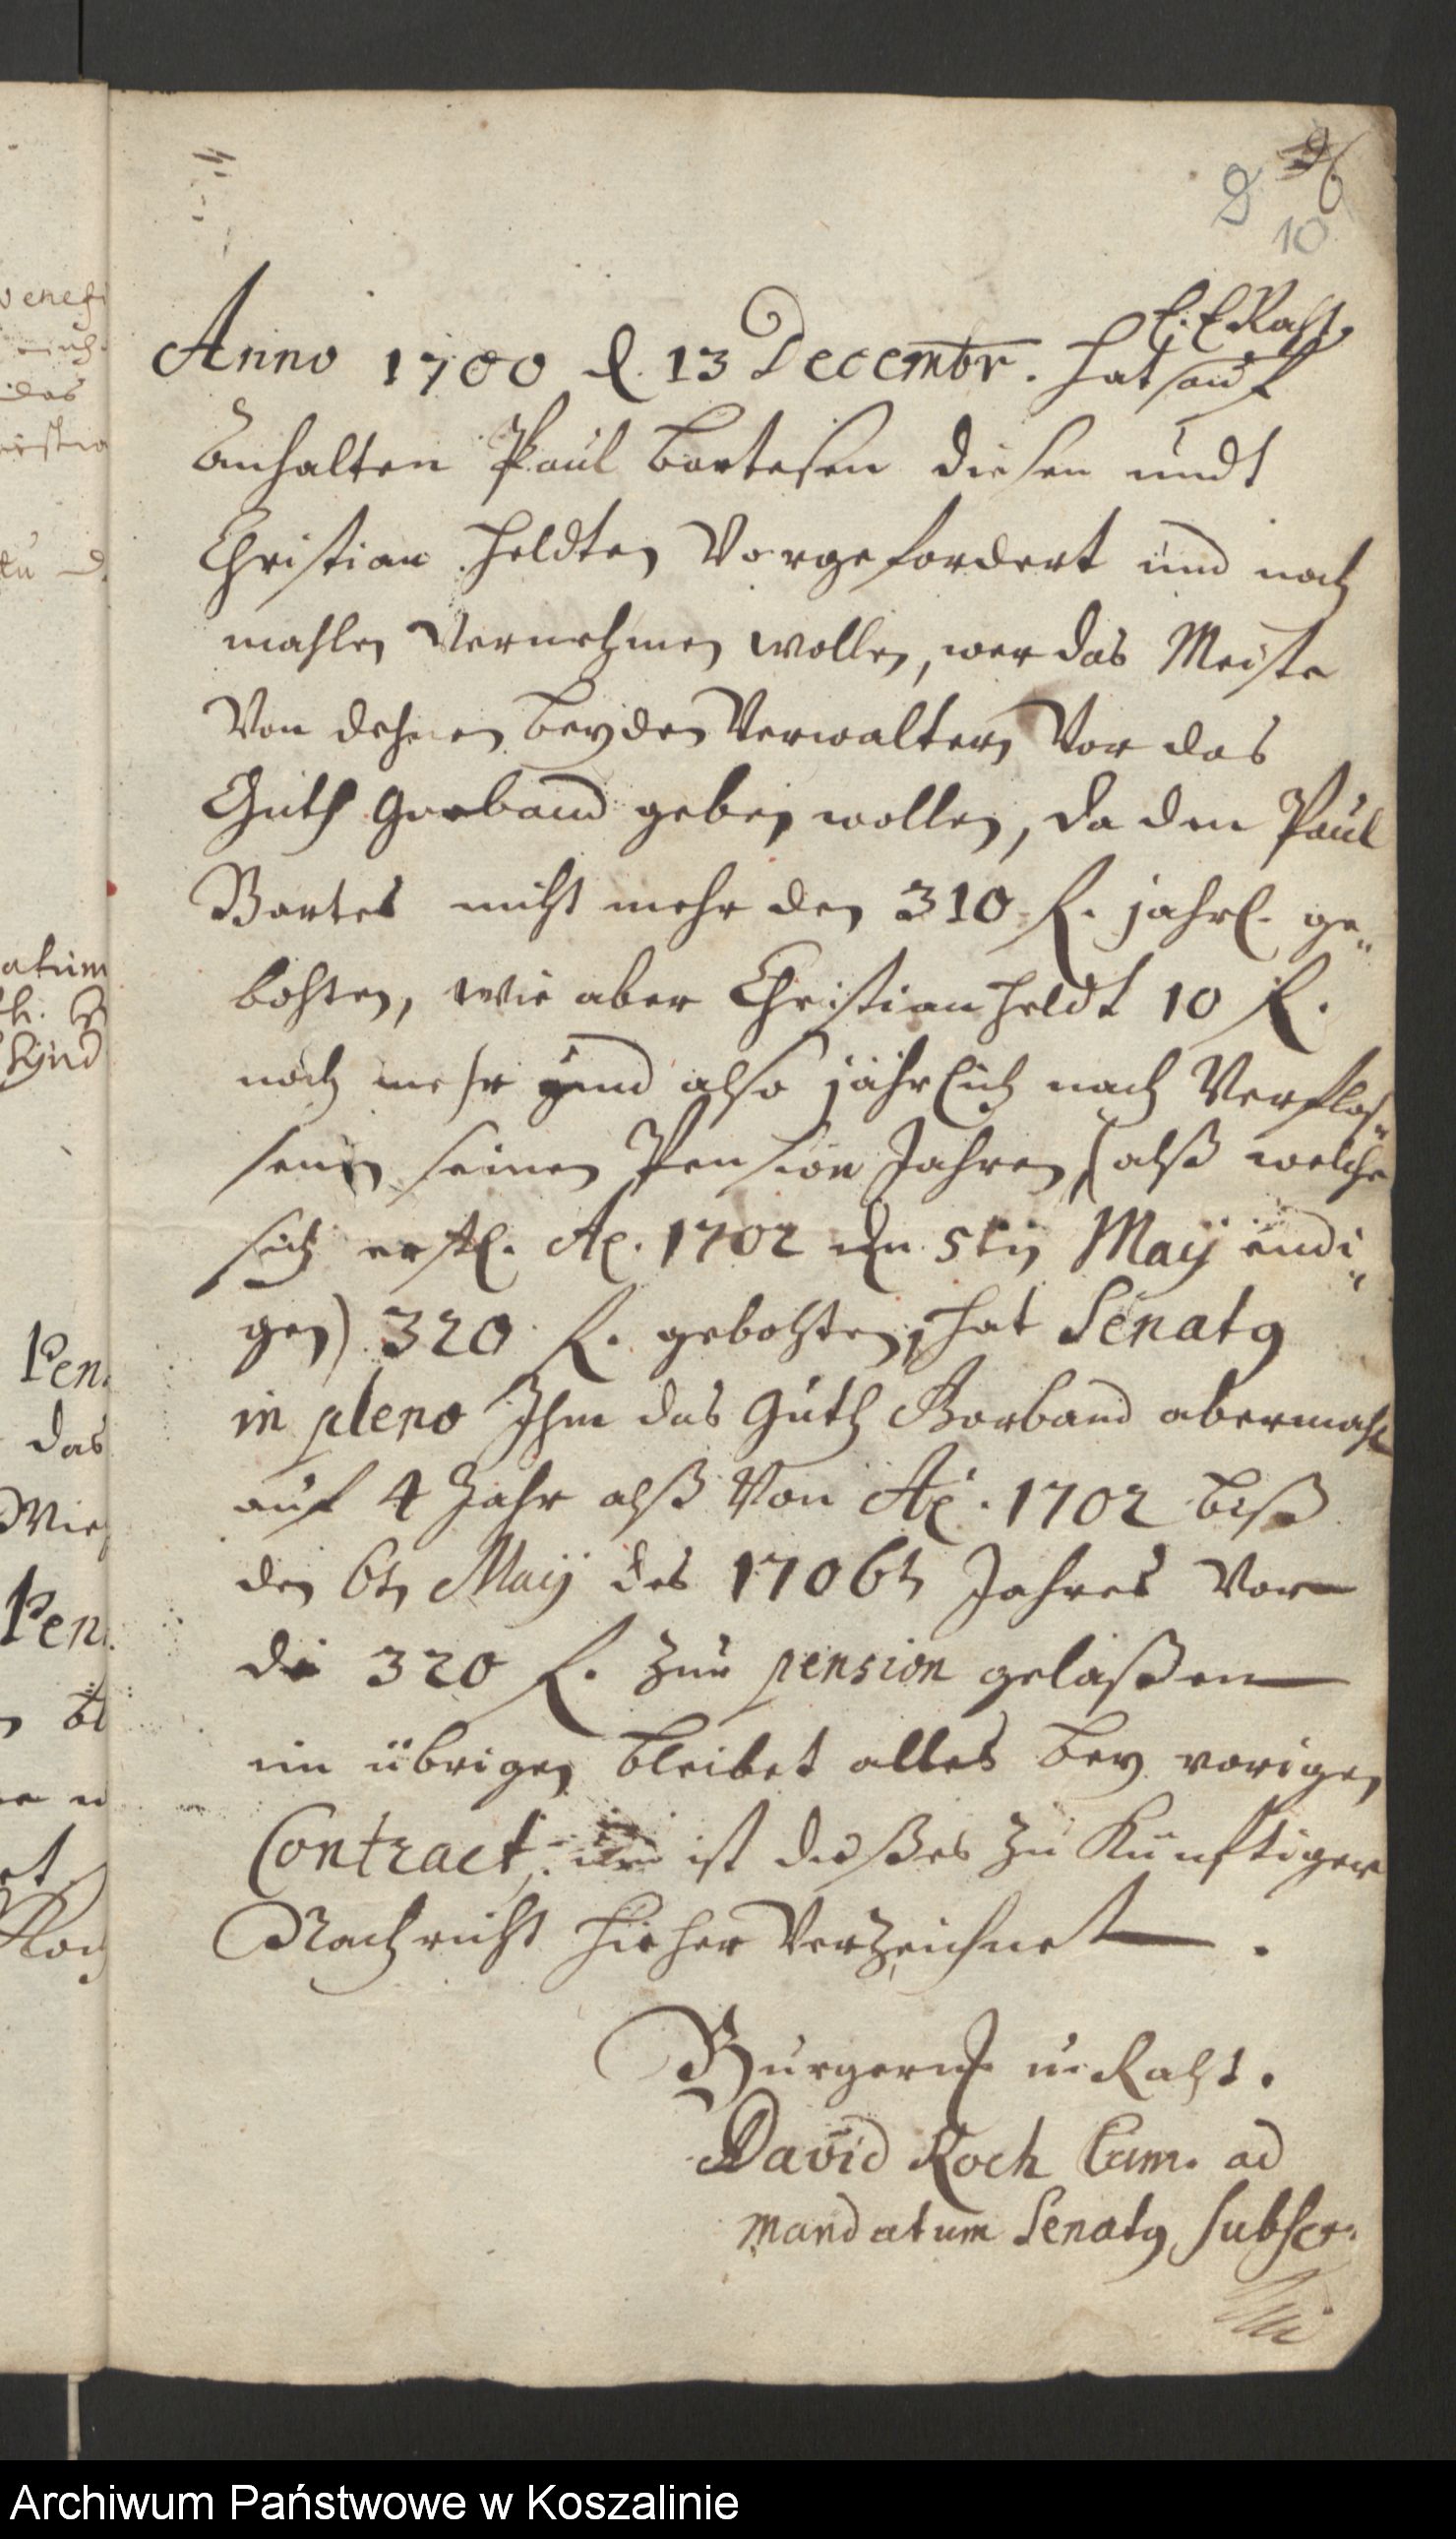 8
10
E. E. Raht
Anno 1700 d. 13 Decembr. hat auf
Anhalten Paul Bartesen diesen undt
Christian Heldten Vorgefordert und noch
mahlen Vernehmen wollen, wer das Meiste
Von dehnen beyden Verwaltern Vor das
Guth Gorband geben wollen, da den Paul
Bartes nicht mehr den 310 f. jahrl. ge-
bohten, wie aber Christian Heldt 10 f.
noch mehr und also jährlich nach Verfloß-
senen seinen Pension Jahren, (alß welche
sich erstl. Ao. 1702 den 5ten Maij endi-
gen) 320 f. gebohten, hat Senatq
in pleno Ihm das Guth Gorband abermahl
auf 4 Jahr alß Von Ao. 1702 biß
den 6t Maij des 1706t Jahres Vor
die 320 f. zur pension gelaßen
im übrigen bleibet alles bey vorigen
Contract, und ist dießes zu Künftiger
Nachricht hieher Verzeichnet .
Burgerm u. Raht.
David Koch Cam. ad
mandatum Senatq subscr.
venefi
das
atum
Synd
Pen
das
Wie
Pen
Archiwum Państwowe w Koszalinie